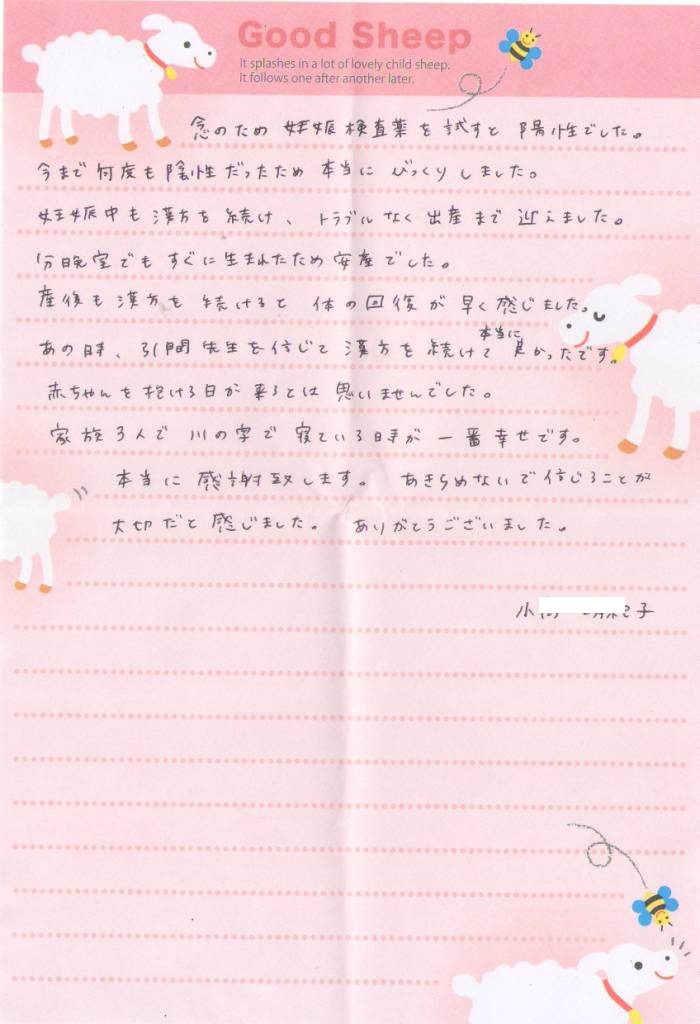 Good Sheep
It splashes in a lot of lovely child sheep.
It follows one after another later.
念のため 妊娠検査薬を試すと 陽性でした。
今まで何度も陰性だったため 本当に びっくりしました。
妊娠中も漢方を続け、トラブルなく出産まで迎えました。
分娩室でもすぐに生まれたため安産でした。
産後も漢方を続けると 体の回復が早く感じました。
あの時、引間先生を信じて漢方を続けて本当に良かったです。
赤ちゃんを抱ける日が来るとは思いませんでした。
家族3人で川の字で寝ている時が一番幸せです。
本当に感謝致します。 あきらめないで信じることが
大切だと感じました。 ありがとうございました。
小 子